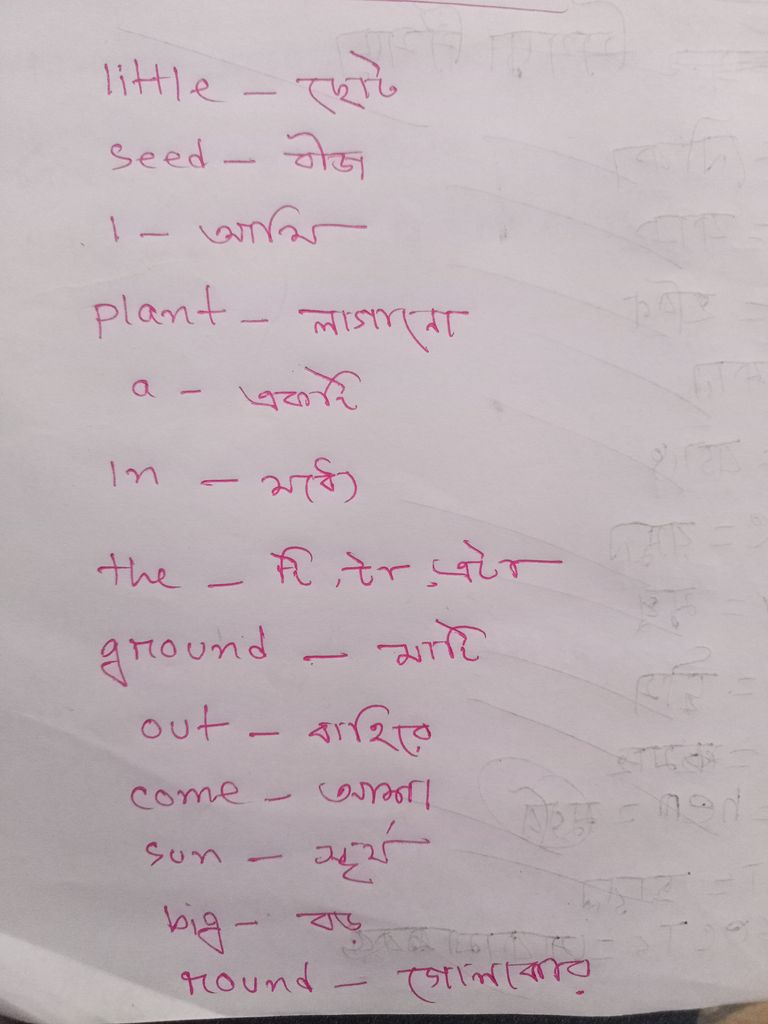 little – ছোট
seed – বীজ
I – আমি
plant – লাগানো
a – একটি
In – মধ্যে
the – টি, টা,
ground – মাটি
out – বাহিরে
come – আসা
sun – সূর্য
big – বড়
round – গোলাকার